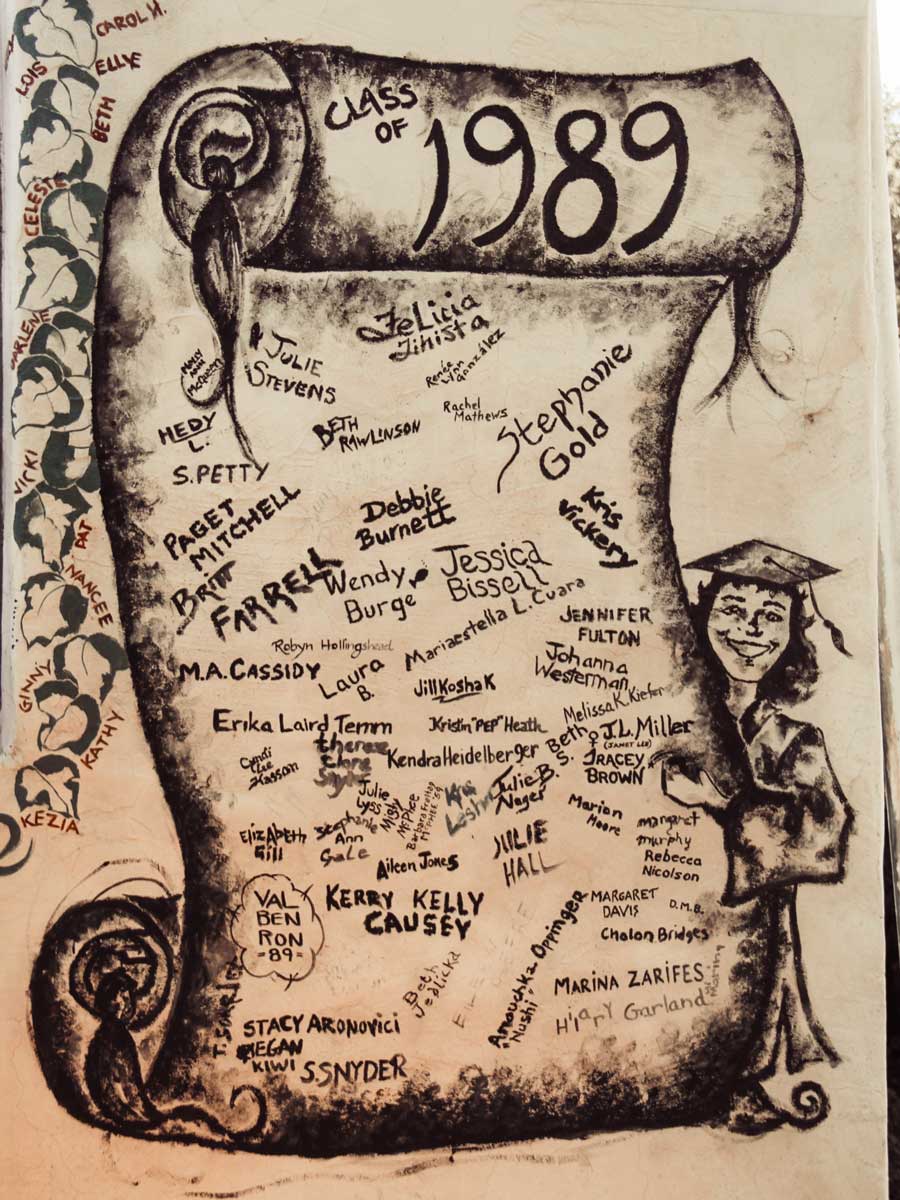 CAROL H.
LOIS
ELLYE
BETH
CELESTE
VICKI
PAT
NANCEE
GINNY
KATHY
KEZIA
CLASS
OF
1989
FeLicia
Jihista
MOLLY
ANN
McQUEEN
JULIE
STEVENS
Renée
Lynn
González
Rachel
Mathews
Stephanie
Gold
HEDY
L.
BETH
RAWLINSON
S.PETTY
PAGET
MITCHELL
Debbie
Burnett
Kris
Vickery
BRITT
FARRELL
Wendy
Burge
Jessica
Bissell
Mariaestella L. Cuara
JENNIFER
FULTON
Robyn Hollingshead
M.A. CASSIDY
Laura
B.
Jill Koshak
Johanna
Westerman
Melissa K. Kiefer
Erika Laird Temm
Kristin "PEP" Heath
Beth
S.
J.L. Miller
(JANET LEE)
TRACEY
BROWN
Cyndi
Lee
Hasson
Kendra Heidelberger
Julie
Julie B.
Nager
Marian
Moore
margaret
murphy
Rebecca
Nicolson
ElizAbeth
Gill
Stephanie
Ann
Gale
Misty
McPhee
Aileen Jones
JULIE
HALL
VAL
BEN
RON
-89-
KERRY KELLY
CAUSEY
MARGARET
DAVIS
D.M.B.
Chalon Bridges
Anouchka Oppinger
"Nushi"
Beth
Jedlicka
MARINA ZARIFES
Hilary Garland
T. STARLEY
STACY ARONOVICI
MEGAN
KIWI
S.SNYDER